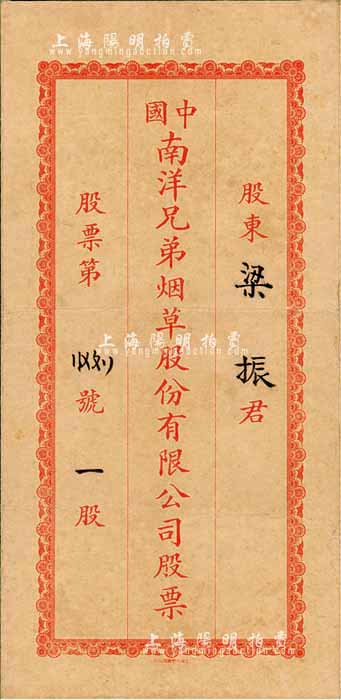 上海陽明拍賣
www.ymingauction.com
中國
南洋兄弟烟草股份有限公司股票
股東 梁振 君
股票第 號 一 股
上海陽明拍賣
www.ymingauction.com
上海陽明拍賣
www.ymingauction.com